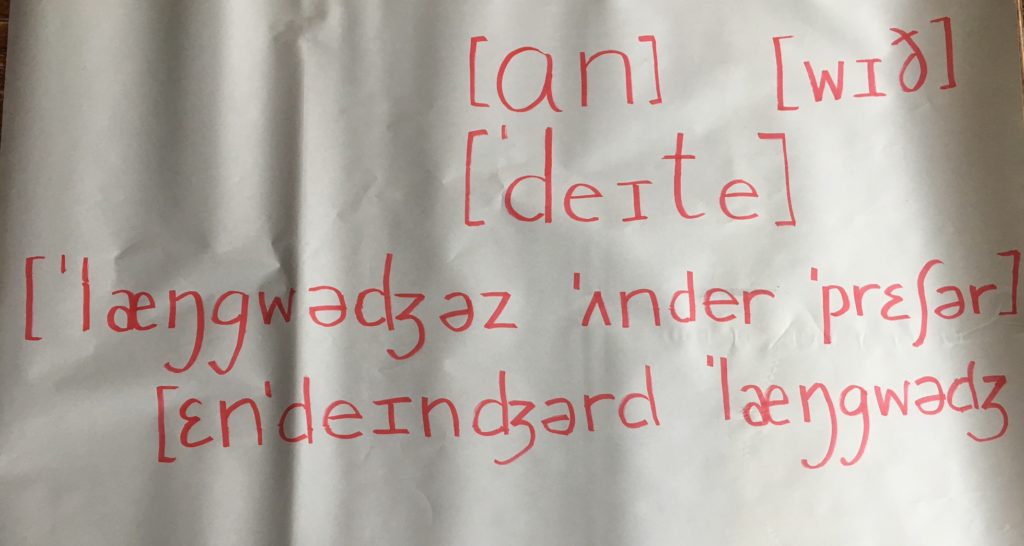 [ɑn] [wɪð]
[ˈdeɪte]
[ˈlæŋgwədʒəz ˈʌnder ˈprɛʃər]
[ɛnˈdeɪndʒərd ˈlæŋgwədʒ